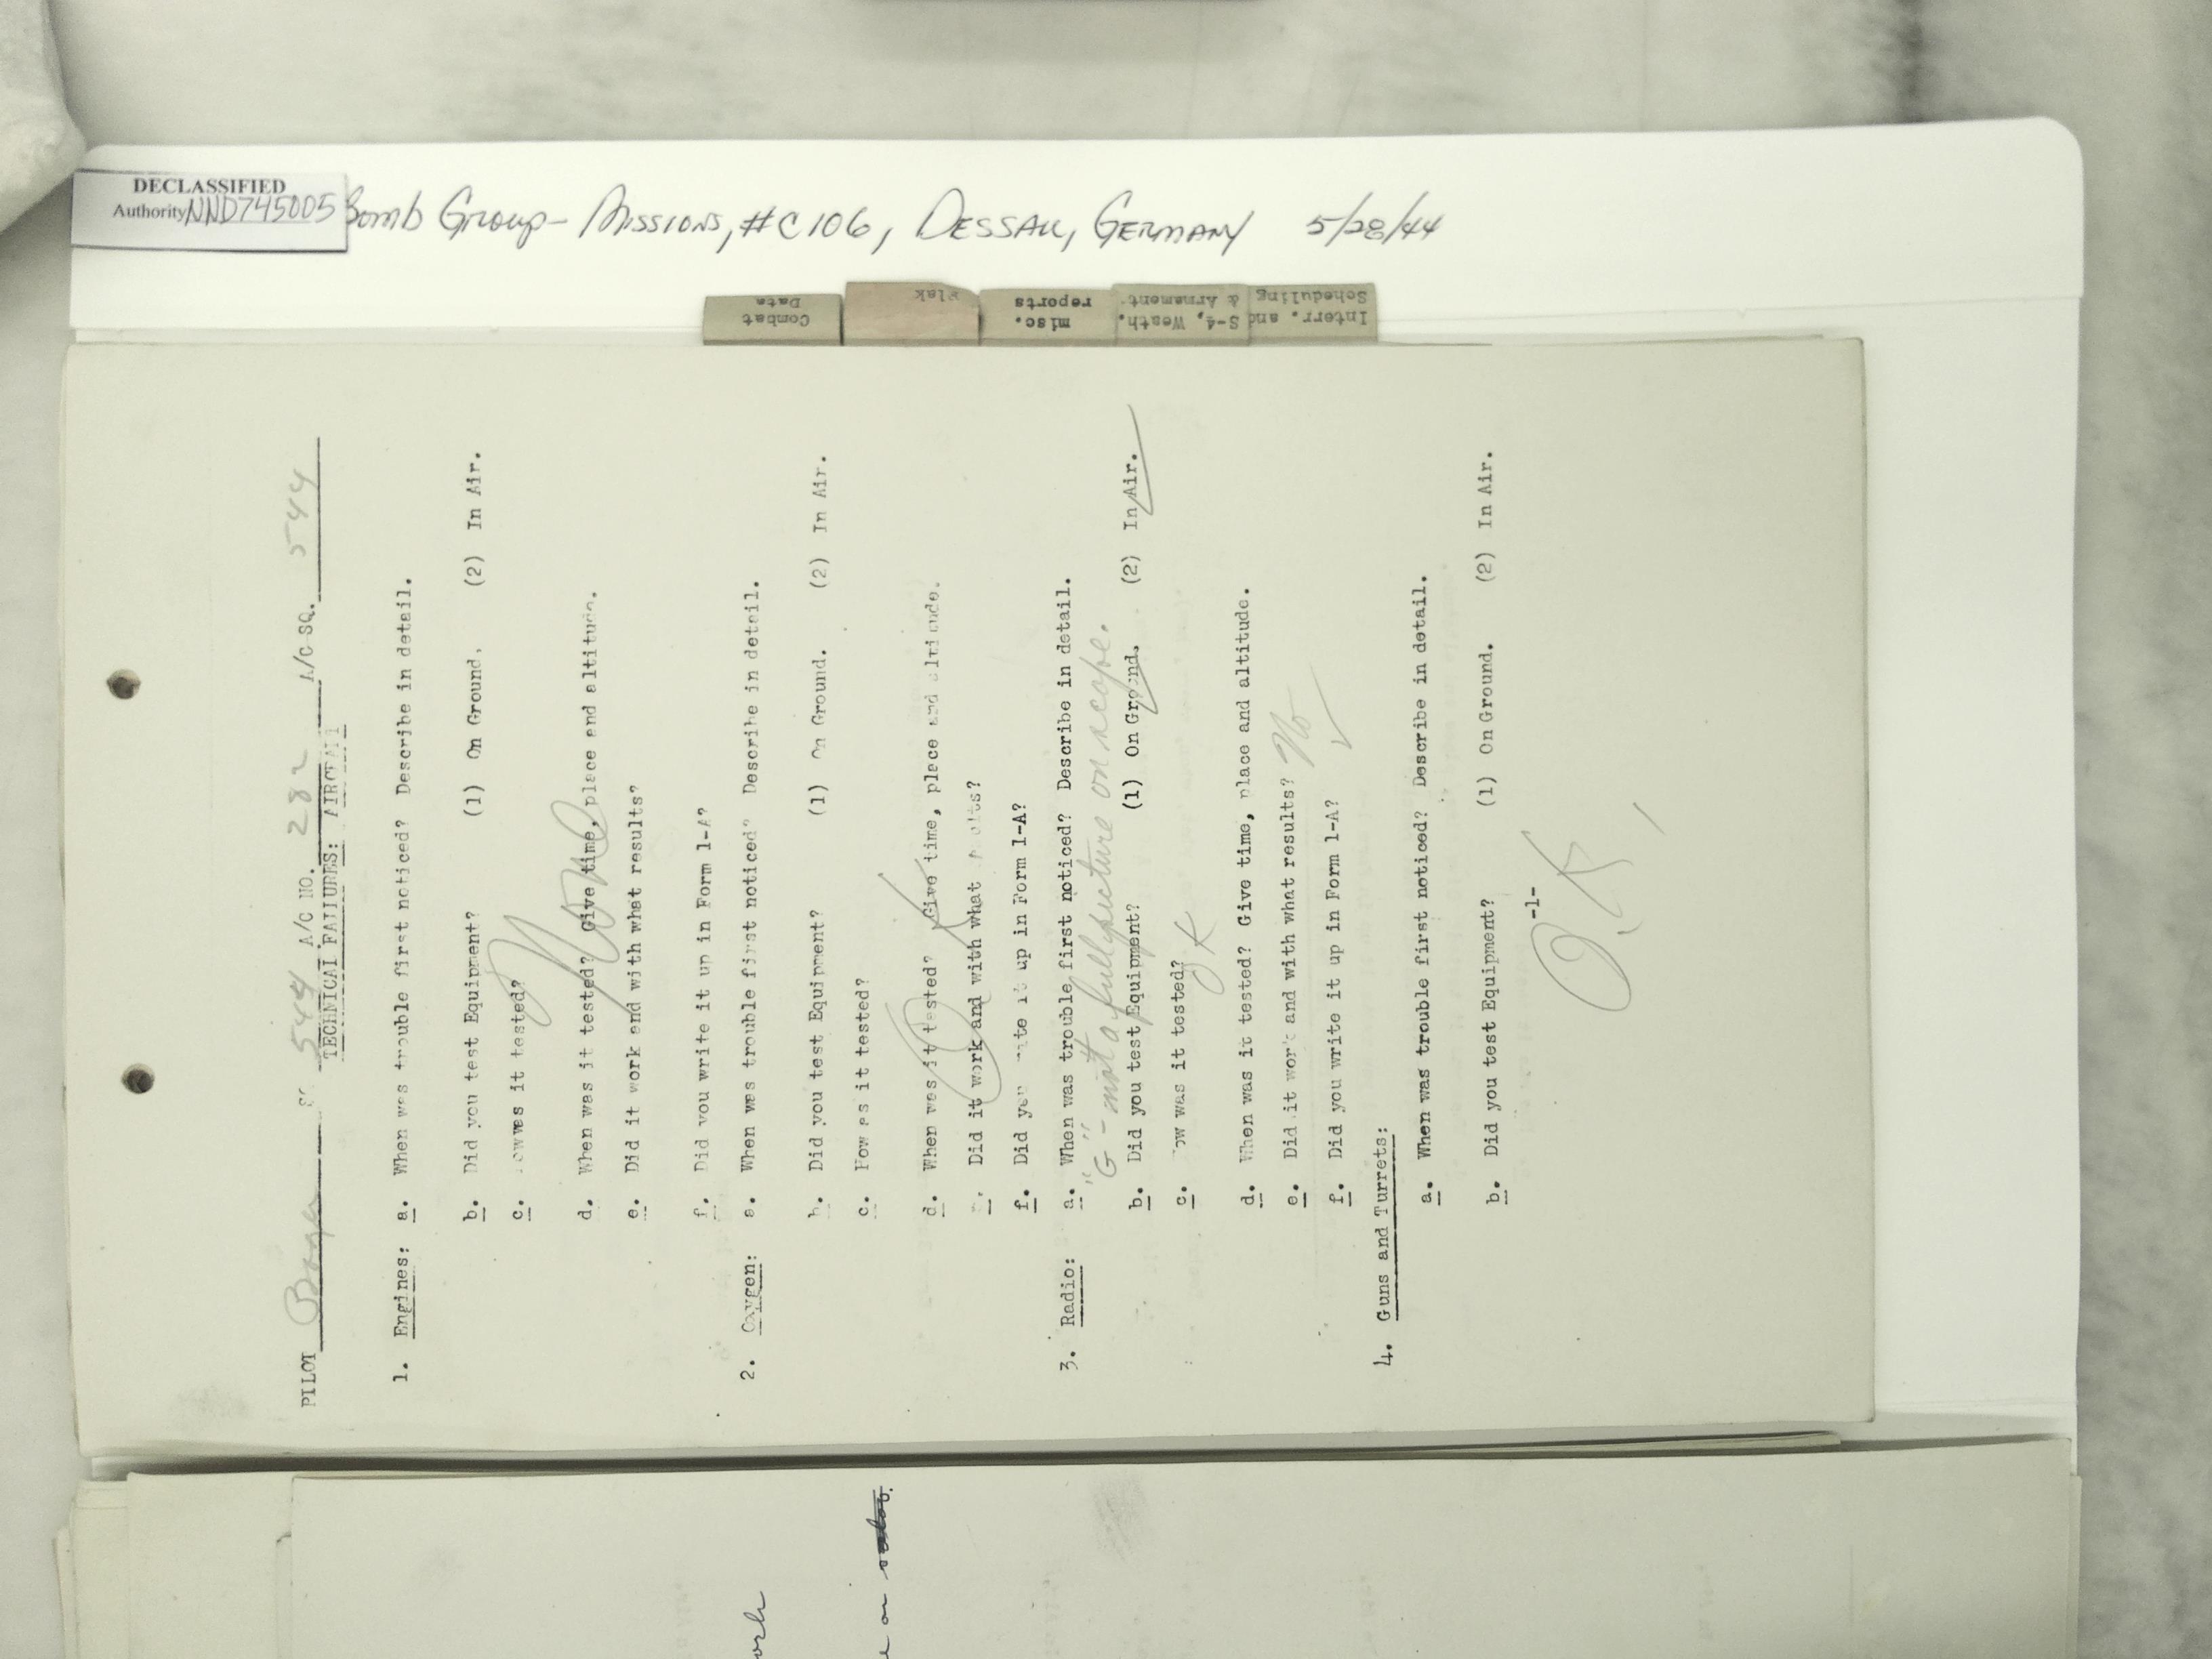 DECLASSIFIED
Authority NND745005
Bomb Group - Missions, #C106, Dessau, Germany 5/28/44
Combat
Data
Flak
misc.
reports
S-4, Weath.
& Armament
Interr. and
Scheduling
PILOT 544 A/C NO. 282 A/C SQ. 544
TECHNICAL FAILURES: AIRCRAFT
1. Engines: a. When was trouble first noticed? Describe in detail.
b. Did you test Equipment? (1) On Ground. (2) In Air.
c. How was it tested?
None
d. When was it tested? Give time, place and altitude.
e. Did it work and with what results?
f. Did you write it up in Form 1-A?
2. Oxygen: a. When was trouble first noticed? Describe in detail.
b. Did you test Equipment? (1) On Ground. (2) In Air.
c. How as it tested?
OK
d. When was it tested? Give time, place and altitude.
e. Did it work and with what results?
f. Did you write it up in Form 1-A?
3. Radio: a. When was trouble first noticed? Describe in detail.
"G" - not a full picture on scope.
b. Did you test Equipment? (1) On Ground. (2) In Air.
c. How was it tested? OK
d. When was it tested? Give time, place and altitude.
e. Did it work and with what results? No
f. Did you write it up in Form 1-A? ✓
4. Guns and Turrets:
a. When was trouble first noticed? Describe in detail.
b. Did you test Equipment? (1) On Ground. (2) In Air.
-1-
O.K.